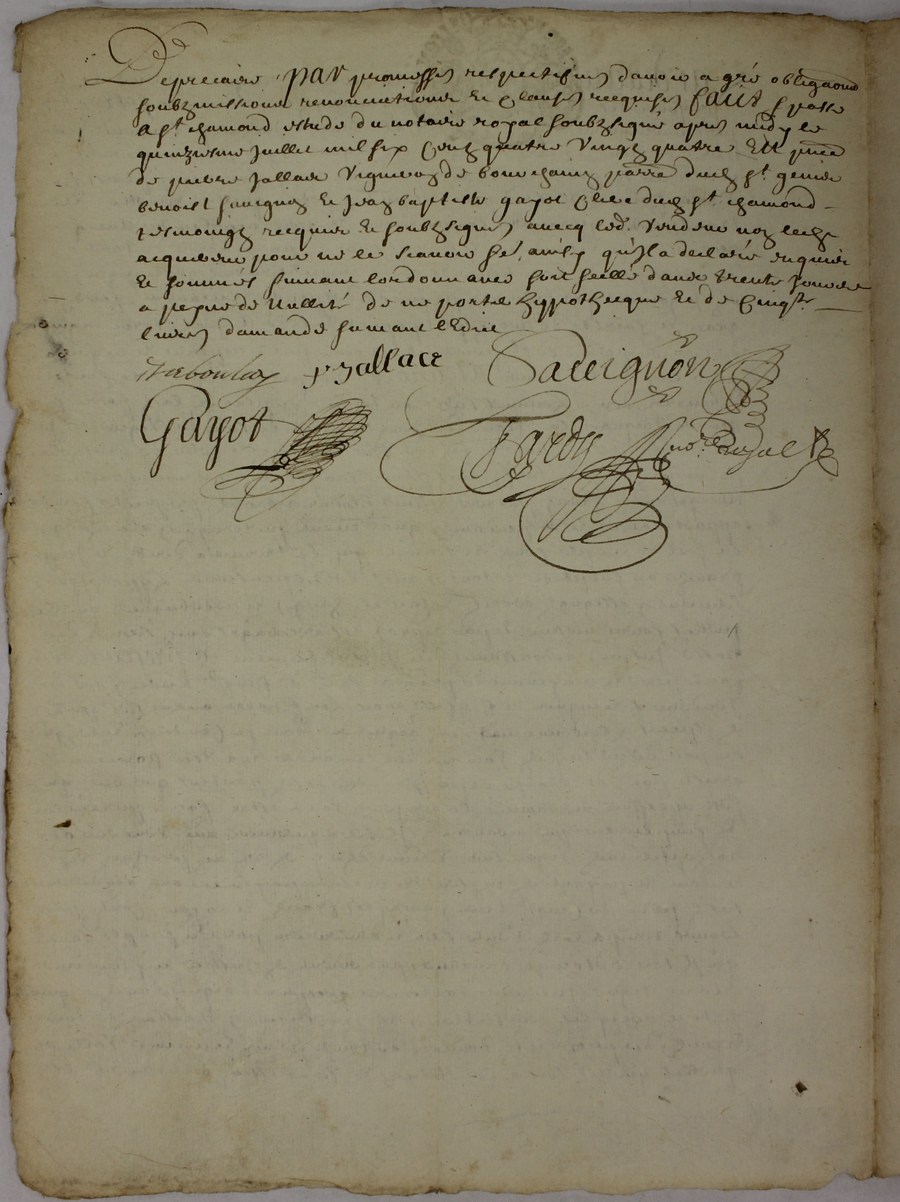 De precaire par promesses respectives davoir a gré obligaons
soubzmissions renonciations et clauses requises faict & passé
a st chamond estude du notaire royal soubzsigné apres midy le
quinziesme juillet mil six centz quatre vingtz quatre Ez pnce
de pierre Jallace vigneron de
benoist sauvignon et jean baptiste gayot clerc dud st chamond
tesmoingz requis et soubzsignes avecq led. vendeur non led
acquereur pour ne le scavoir fe ainsy qu'il a declaré enquis
et sommés suivant lordonnance soit scellé dans trente jours
a peyne de nullité de ne porter hyppothecque et de cinqte
livres damande suivant lEdict
P Jallace Sauvignon
Gayot Jardy nore Royal